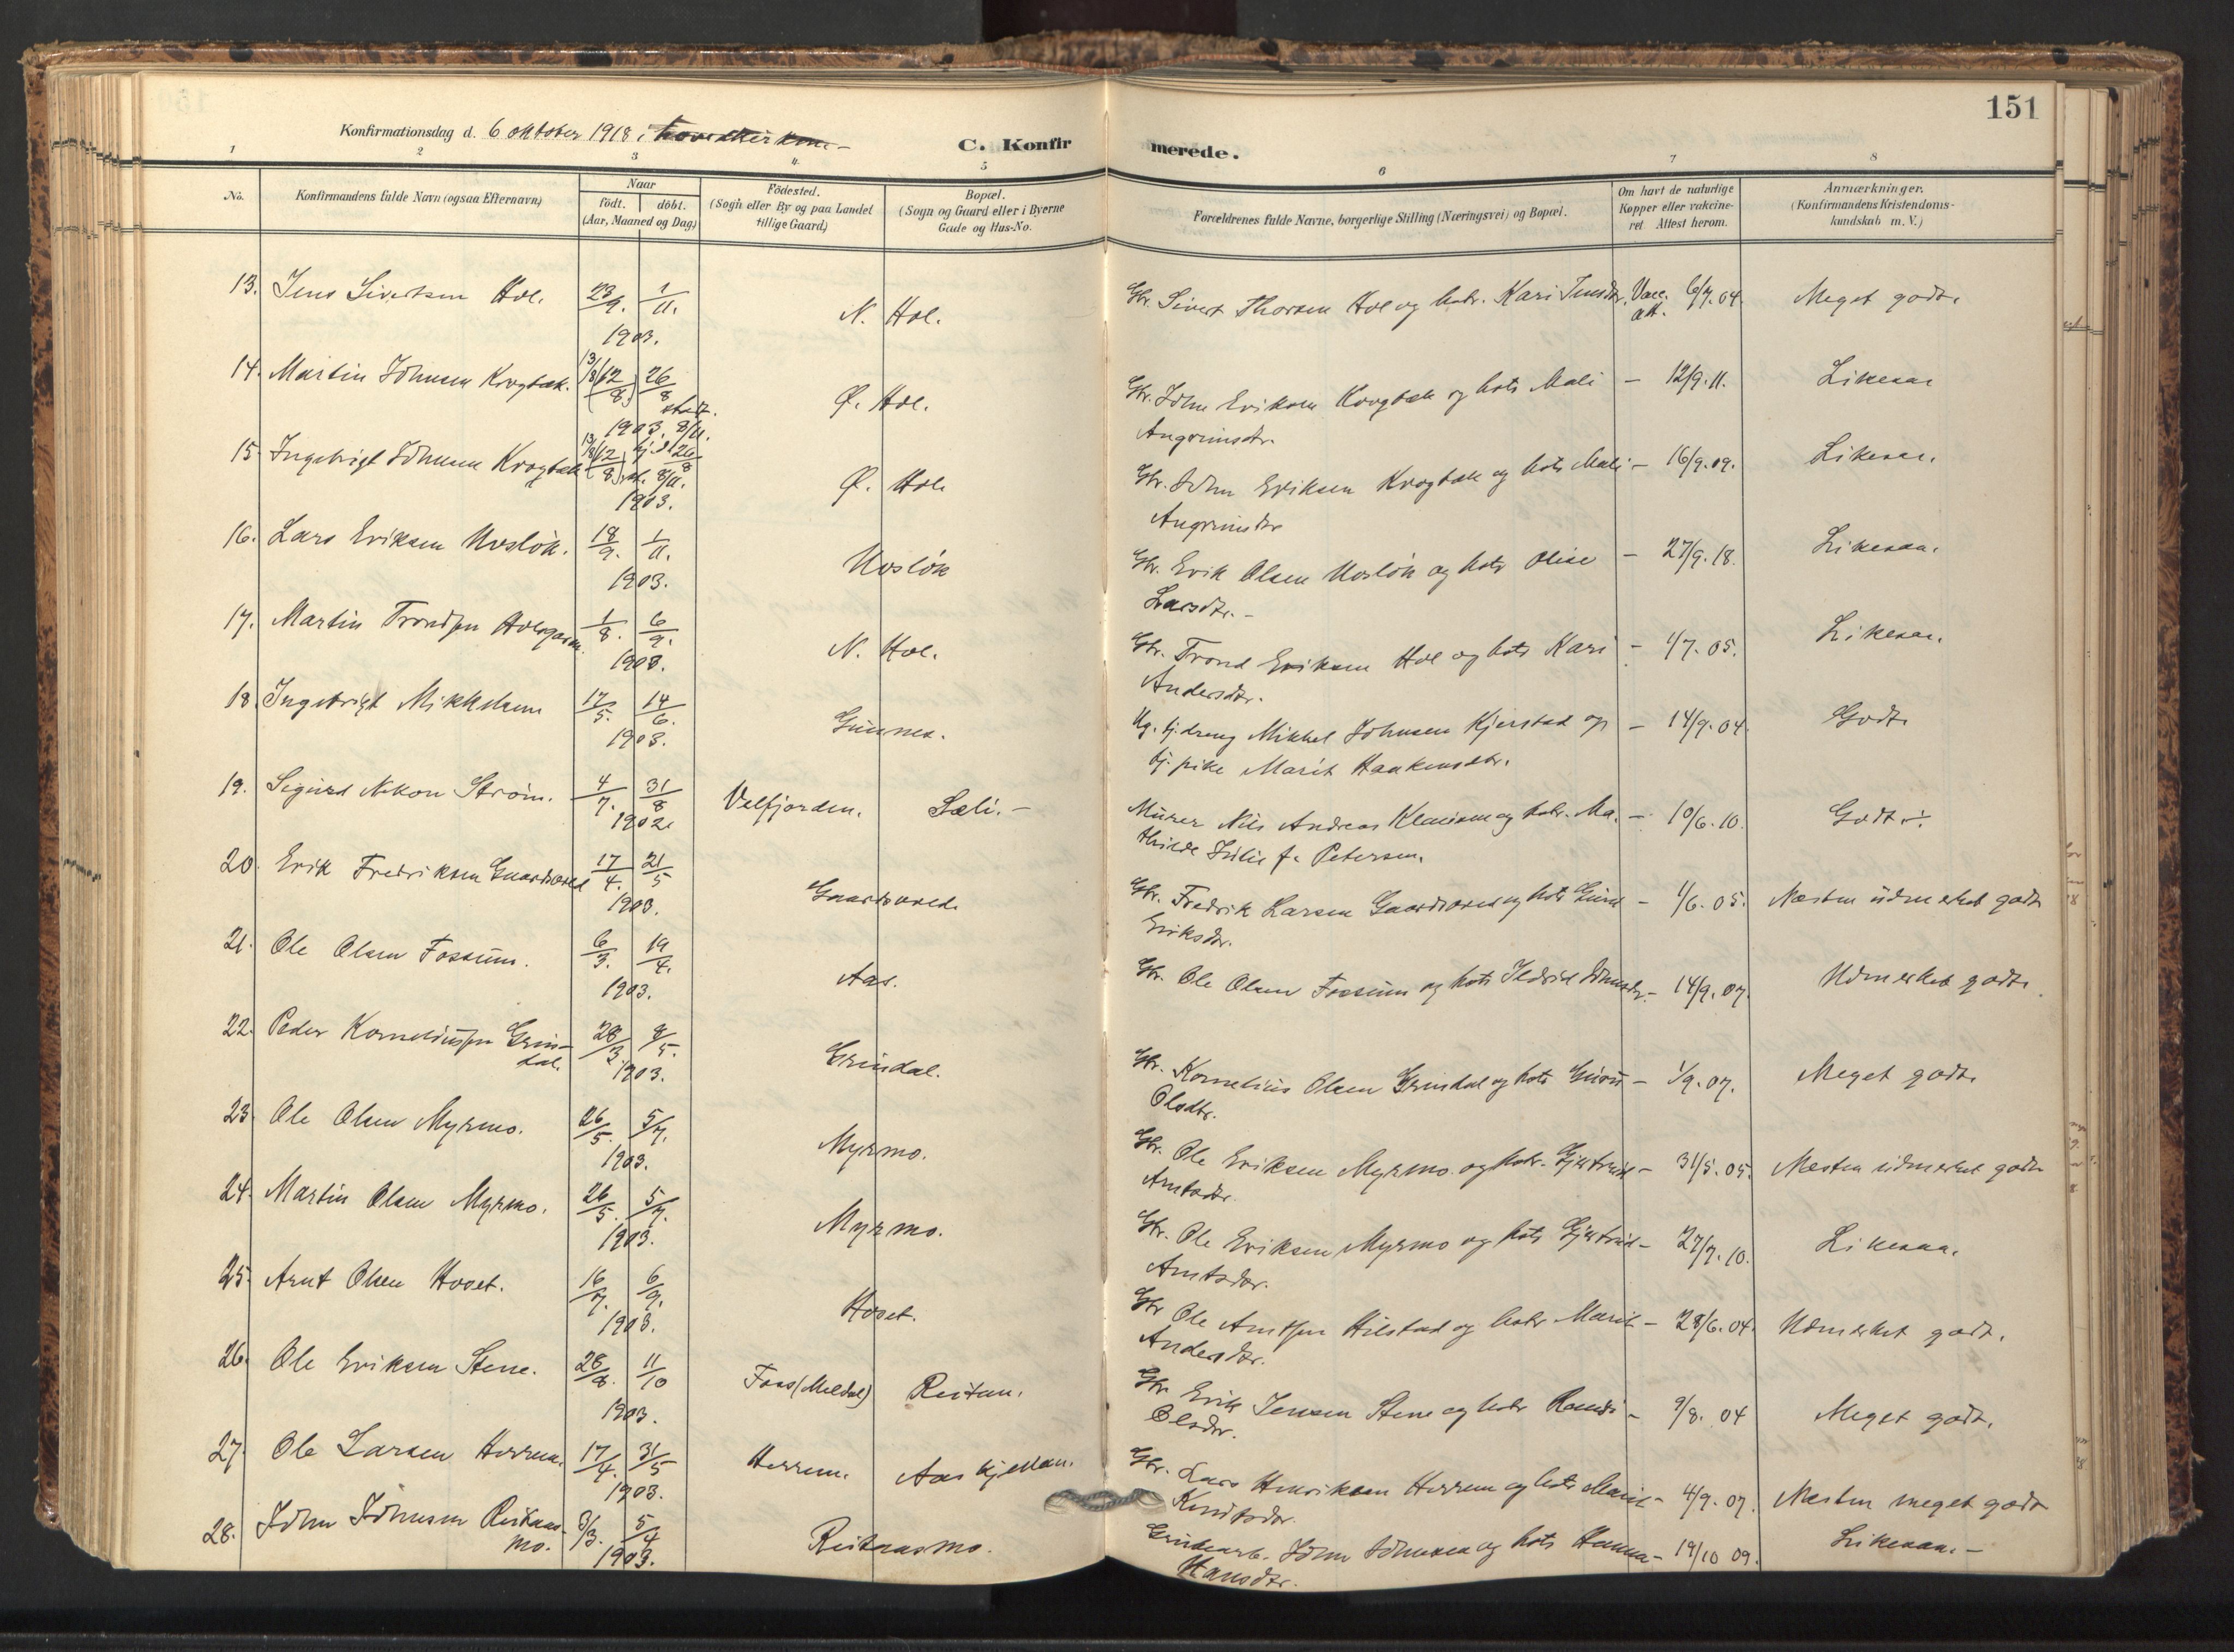 151
Konfirmationsdag d. 6 oktober 1918 i
C. Konfirmerede.
1 2 3 4. 5 6 7 8
No.
Konfirmandens fulde Navn (ogsaa Efternavn)
Naar
født. døbt.
(Aar, Maaned og Dag)
Födested.
(Sogn eller By og paa Landet
tillige Gaard)
Bopæl.
(Sogn og Gaard eller i Byerne
Gade og Hus-No.
Forældrenes fulde Navne, borgerlige Stilling (Næringsvei) og Bopæl.
Om havt de naturlige
Kopper eller vakcine-
ret Attest herom.
Anmærkninger.
(Konfirmandens Kristendoms-
kundskab m. V.)
13. Jens Sivertsen Hol. 23/9. 1/11. 1903. N. Hol. Gbr. Sivert Thorsen Hol og hstr. Kari Jensdtr. Vacc. att. 6/7.04. Meget godt.
14. Martin Johnsen Krogbæk. 13/8 (12/8) 26/8 stadf. 8/11. 1903. Ø. Hol. Gbr. John Eriksen Krogbæk og hstr Mali
Angrimsdtr. – 12/9.11. Likesaa
15. Ingebrigt Johnsen Krogbæk 13/8 (12/8) hj.d. 26/8 st. 8/11. 1903. Ø. Hol. Gbr. John Eriksen Krogbæk og hstr Mali
Angrimsdtr – 16/9.09. Likesaa.
16. Lars Eriksen Mosløk. 18/9. 1/11. 1903. Mosløk Gbr. Erik Olsen Mosløk og hstr Olise
Larsdtr. – – 27/9.18. Likesaa.
17. Martin Trondsen 1/8. 6/9. 1903. N. Hol. Gbr. Trond Eriksen Hol og hstr Kari
Andersdtr. – 1/7.05. Likesaa.
18. Ingebrigt Mikkelsen 17/5. 14/6. 1903. Gunnes. Ug. tj.dreng Mikkel Johnsen Kjerstad og
tj. pike Marit Haakensdtr. – 14/9.04. Godt
19. Sigurd Nikon Strøm. 4/7. 31/8 1902 Velfjorden. Sæli. – Murer Nils Andreas og hstr. Ma-
thilde Julie f. Petersen. – 10/6.10. Godt ÷
20. Erik Fredriksen Gaardsvred 17/4. 21/5 1903. Gaardsvred. Gbr. Fredrik Larsen Gaardsvred og hstr Guru
Eriksdtr. – 1/6.05. Næsten udmerket godt
21. Ole Olsen Fossum. 6/3. 19/4. 1903. Aas. Gbr. Ole Olsen Fossum og hstr Ildrid Johnsdtr. – 14/9.07. Udmerket godt.
22. Peder Korneliussen Grin-
dal. 28/3. 8/5. 1903. Grindal. Gbr. Kornelius Olsen Grindal og hstr Guru
Olsdtr. – 1/9.07. Meget godt.
23. Ole Olsen Myrmo. 26/5. 5/7. 1903. Myrmo. Gbr. Ole Eriksen Myrmo og hstr. Gjertrud
Arntsdtr. – 31/5.05. Næsten udmerket godt
24. Martin Olsen Myrmo. 26/5. 5/7. 1903. Myrmo. Gbr. Ole Eriksen Myrmo og hstr Gjertrud
Arntsdtr. – 27/7.10. Likesaa.
25. Arnt Olsen Hovet. 16/7. 6/9. 1903. Hovet. Gbr Ole Arntsen Hilstad og hstr Marit
Andersdtr. – 28/6.04. Udmerket godt.
26. Ole Eriksen Stene. 28/8. 11/10 1903. Foss (Meldal) Reitan. Gbr Erik Jensen Stene og hstr Randi
Olsdtr. – 9/8.04 Meget godt.
27. Ole Larsen Herrem. 17/4. 31/5 1903. Herrem. Aaskjellan. Gbr. Lars Henriksen Herrem og hstr Marit
Knudtsdtr. – 4/9.07. Næsten meget godt
28. John Johnsen Reitaas-
mo. 3/3. 5/4 1903. Reitaasmo. Grubearb. John Johnsen og hstr Hanna
Hansdtr. – 19/10 09. Likesaa. –